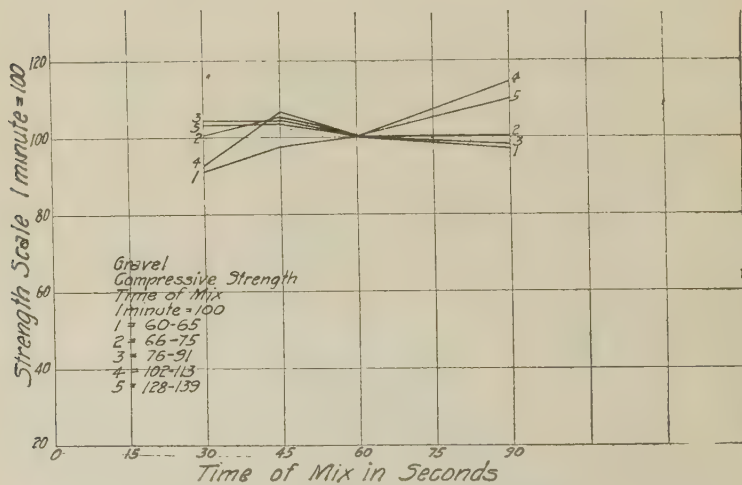 Strength Scale 1 minute=100
120
100
80
60
40
20
3
5
2
4
1
4
5
2
3
1
Gravel
Compressive Strength
Time of Mix
1 minute=100
1 = 60-65
2 = 66-75
3 = 76-91
4 = 102-113
5 = 128-139
0 15 30 45 60 75 90
Time of Mix in Seconds